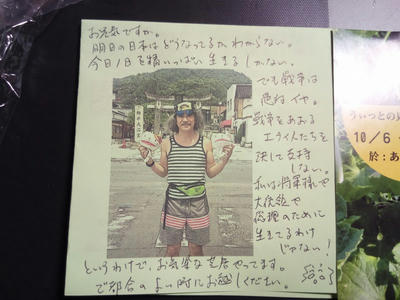 お元気ですか。
明日の日本はどうなってるかわからない。
今日1日を精いっぱい生きるしかない。
でも戦争は
絶対イヤ。
戦争をあおる
エライ人たちを
決して支持
しない。
私は将軍様や
大統領や
総理のために
生きてるわけ
じゃない！
というわけで、お気楽な芝居やってます。
ご都合のよい時にお越しください。
10/6
於：あ